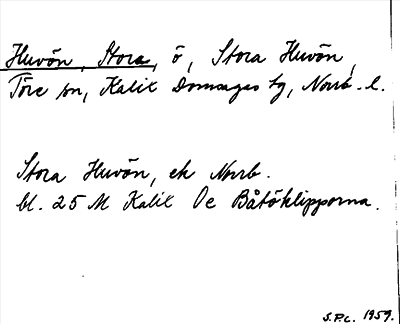 Huvön, Stora, ö, Stora Huvön,
Töre sn, Kalix Domsagas tg, Norrb. l.
Stora Huvön, ek Norrb.
bl. 25 M Kalix Oe Båtöklipporna.
S.P.C. 1959.